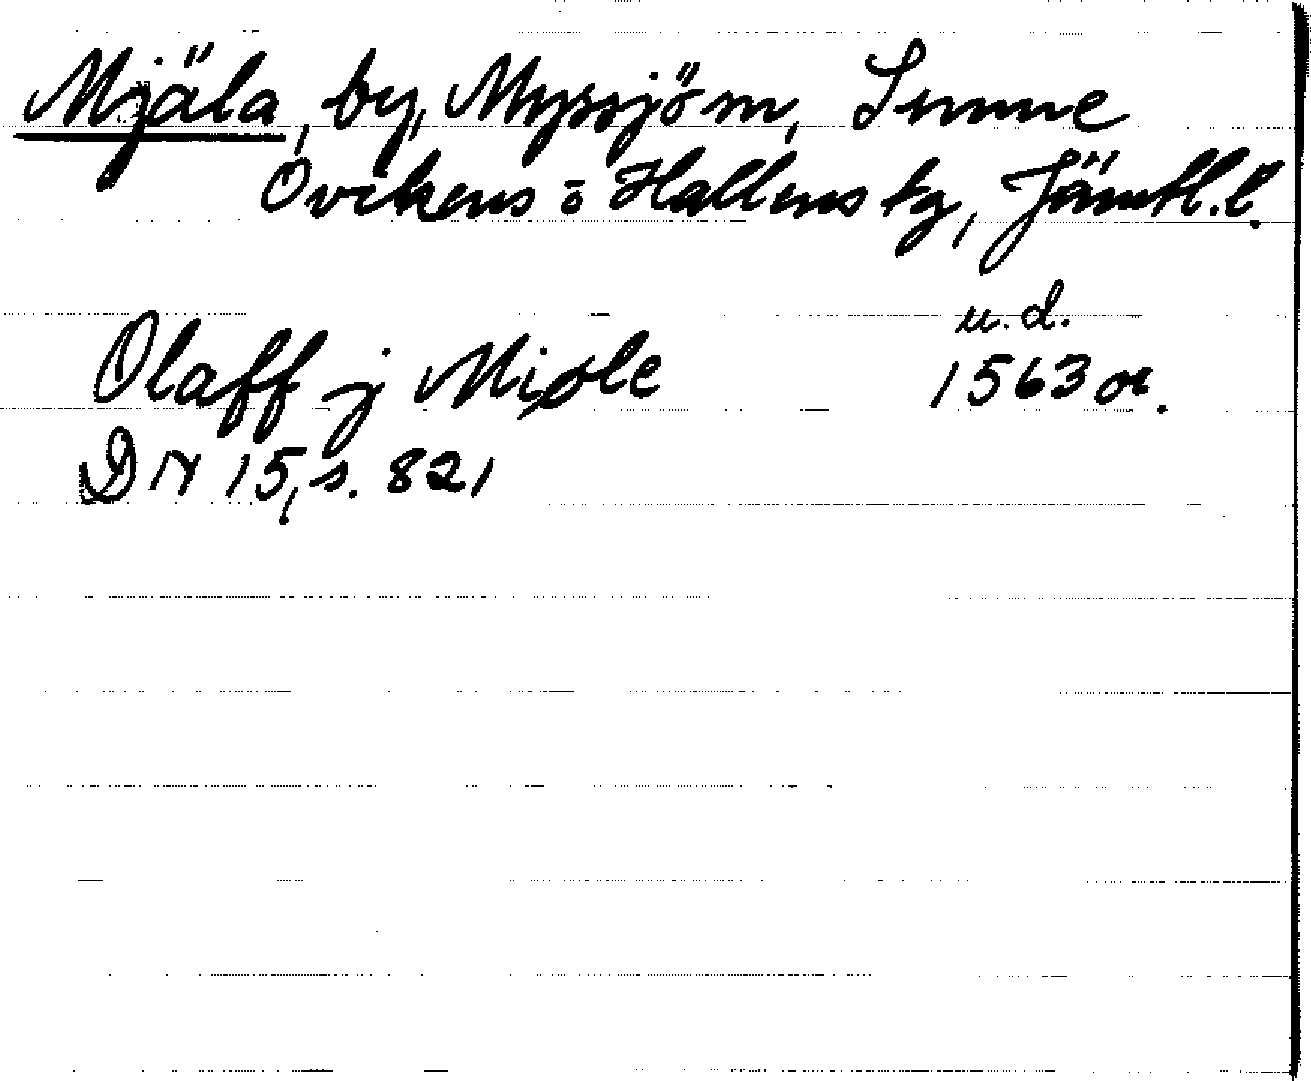 Mjäla, by, Myssjö sn, Sunne
Ovikens o Hallens tg, Jämtl. l.
u. d.
Olaff j Miøle 1563 or.
DN 15, s. 821